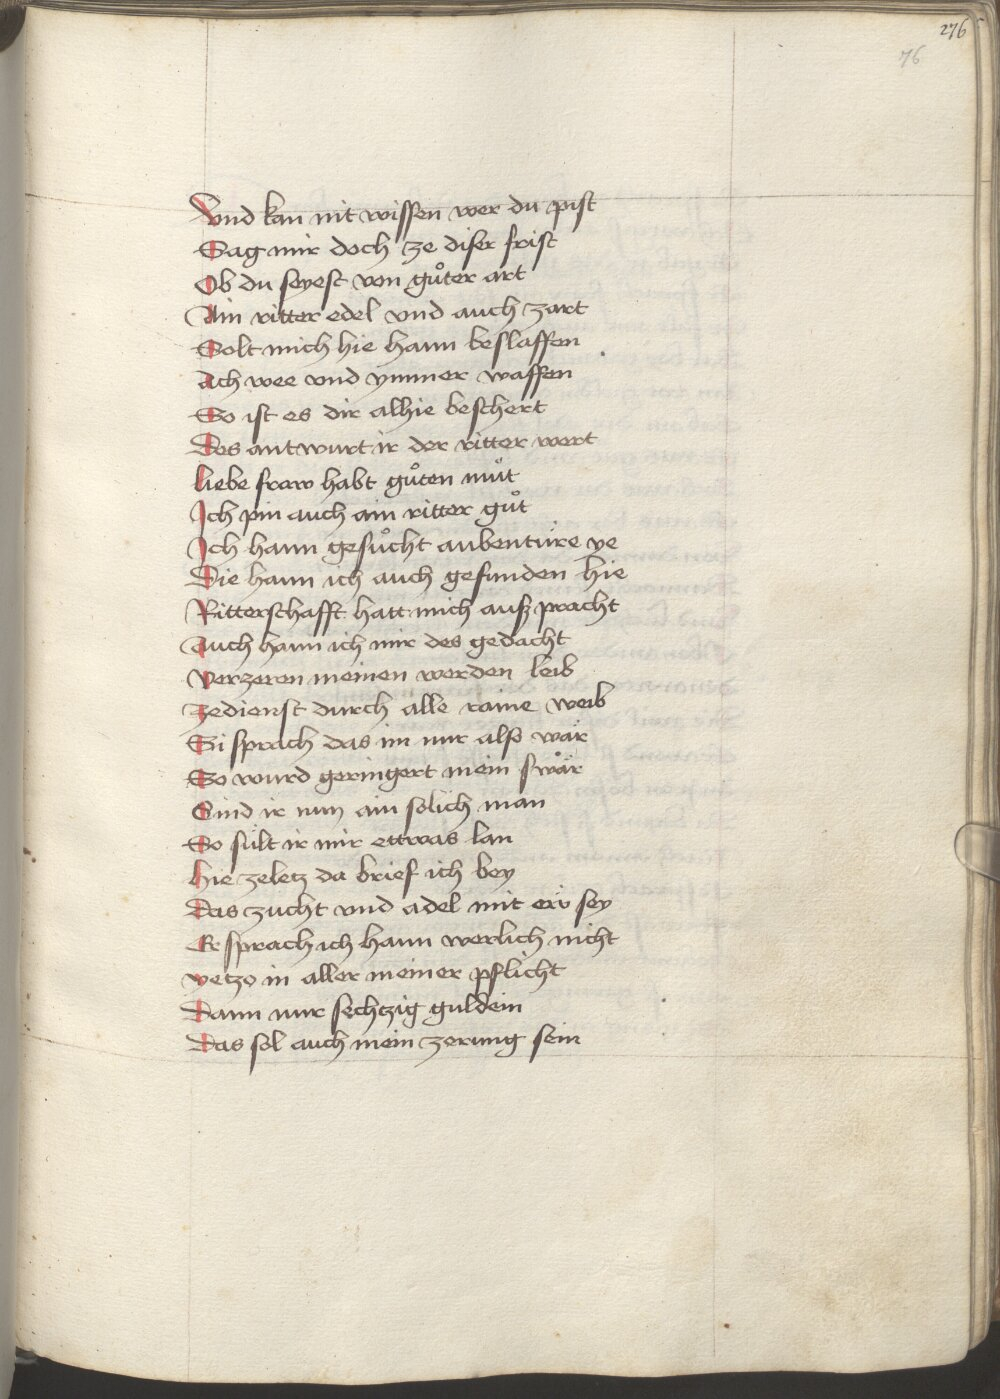 276
76
Vnd kan nit wissen wer du pist
Sag mir doch ze diser frist
Ob du seyest von guͦter art
Ain ritter edel vnd auch zart
Solt mich hie hann beslaffen
Ach wee vnd ymmer waffen
So ist es dir alhie beschert
Des antwurt ir der ritter wert
liebe fraw habt guͦten muͦt
Ich pin auch ain ritter guͦt
Ich hann gesuͦcht aubentüre ye
Die hann ich auch gefunden hie
Ritterschafft hatt mich auſz pracht
Auch hann ich mir des gedacht
Verzeren meinen werden leib
ze dienst durch alle raine weib
Si sprach das im nur also wär
So wurd geringert mein swär
Sind ir nun ain sölich man
So sült ir mir ettwas lan
hie ze letz da brief ich bey
Das zucht vnd adel mit eẅ sey
Er sprach ich hann werlich nicht
yetzo in aller meiner pflicht
Dann nur sechtzig guldein
Das sol auch mein zerung sein